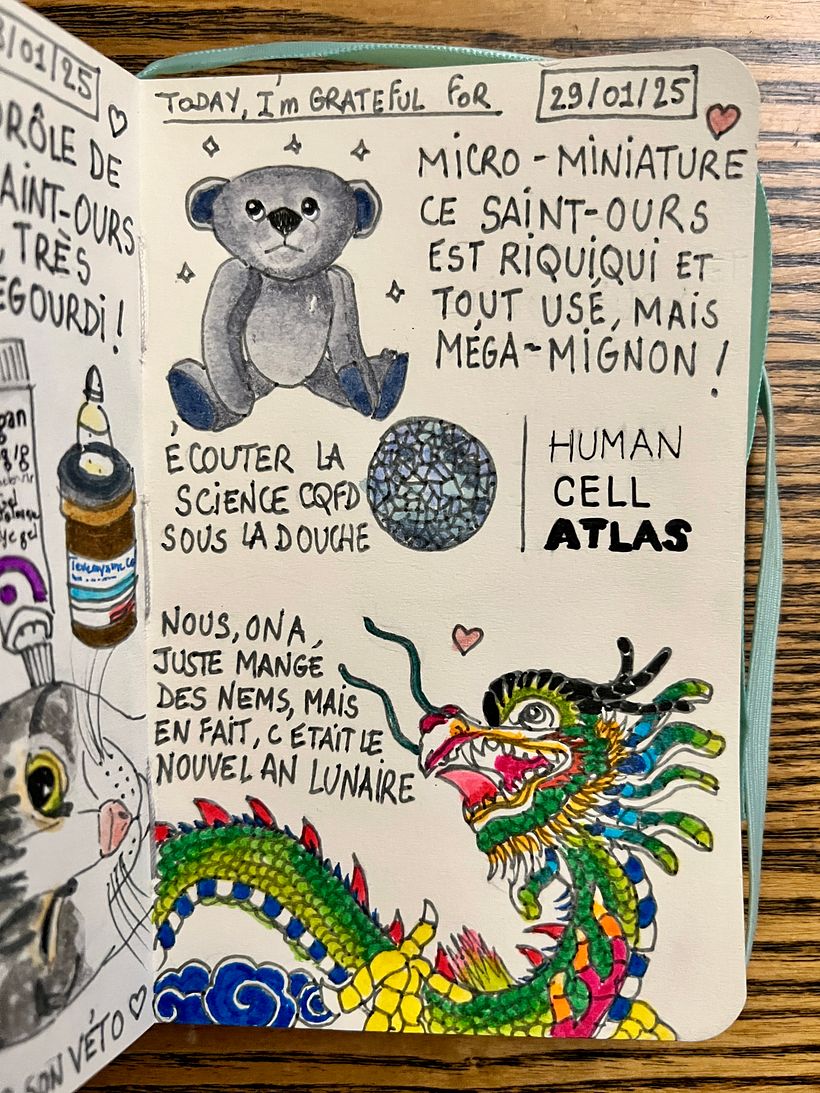 /01/25
DRÔLE DE
AINT-OURS
, TRÈS
ÉGOURDI !
SON VÉTO
TODAY, I'm GRATEFUL FOR
29/01/25
MICRO-MINIATURE
CE SAINT-OURS
EST RIQUIQUI ET
TOUT USÉ, MAIS
MÉGA-MIGNON !
ÉCOUTER LA
SCIENCE CQFD
SOUS LA DOUCHE
HUMAN
CELL
ATLAS
NOUS, ON A
JUSTE MANGÉ
DES NEMS, MAIS
EN FAIT, C'ÉTAIT LE
NOUVEL AN LUNAIRE